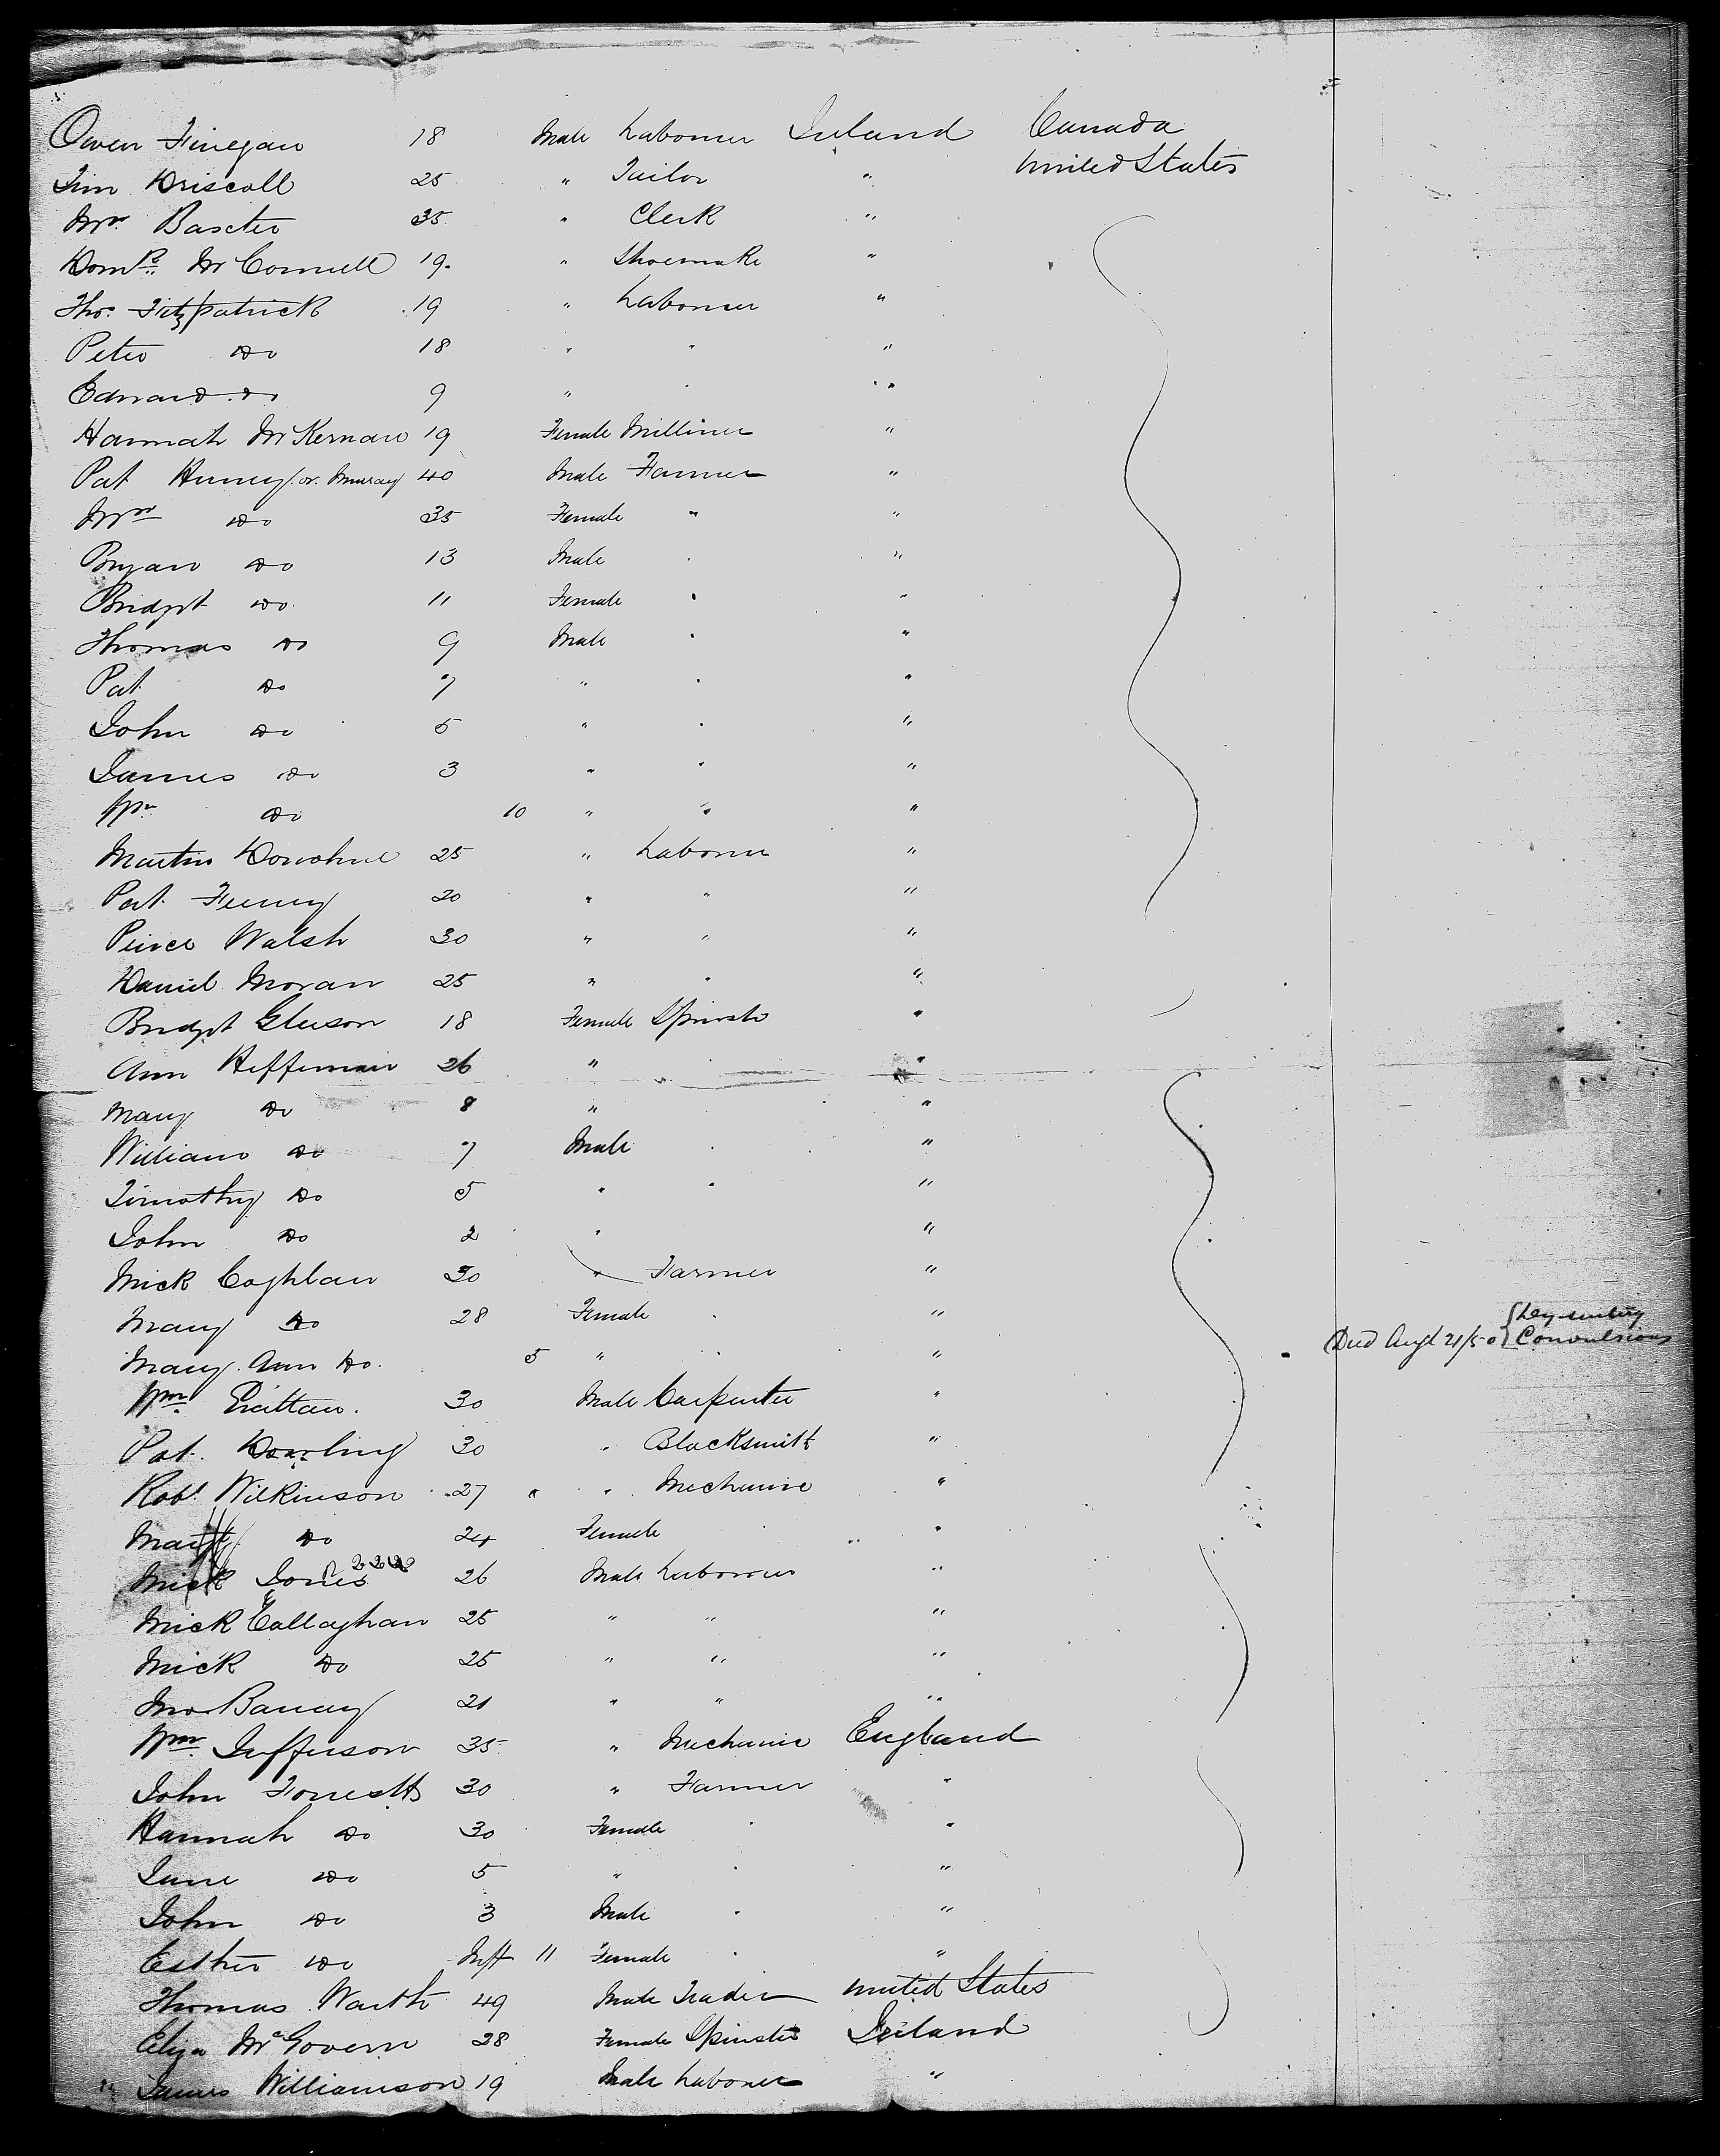 Owen Finegan 18 Male Labourer Ireland Canada
Tim Driscoll 25 " Tailor " United States
Baxter 35 " Clerk "
McConnell 19 " Shoemake "
Thos Fitzpatrick 19 " Labourer "
Peter Do 18 " " "
Edward do 9 " " "
Hannah McKernan 19 Female Milliner "
Pat or Murray 40 Male Farmer "
Do 35 Female " "
Bryan Do 13 Male " "
Bridgt Do 11 Female " "
Thomas Do 9 Male " "
Pat Do 7 " " "
John Do 5 " " "
James Do 3 " " "
Wm Do 10 " " "
Martin Donohue 25 " Labourer "
Pat Feeney 20 " " "
Peirce Walsh 30 " " "
Daniel Moran 25 " " "
Bridgt Gleeson 18 Female Spinster "
Ann Heffernan 26 " " "
Mary Do 8 " "
William Do 7 Male " "
Timothy Do 5 " " "
John Do 2 " "
Mick Coghlan 30 " Farmer "
Mary Do 28 Female " "
Mary Ann Do 5 " " " Died Augt 21/50 { Dysentery Convulsions
Wm Grattan 30 Male Carpenter "
Pat Dowling 30 " Blacksmith "
Robt Wilkinson 27 " " Mechanic "
Do 24 Female "
Mick Jones 26 Male Labourer "
Mick Callaghan 25 " " "
Mick Do 25 " " "
Jno 21 " " "
Wm Jefferson 35 " Mechanic England
John Forrest 30 " Farmer "
Hannah Do 30 Female " "
Jane Do 5 " " "
John Do 3 Male " "
Esther Do Inft 11 Female " "
Thomas Warth 49 Male Trader United States
Eliza McGovern 28 Female Spinster Ireland
James Williamson 19 Male Labourer "